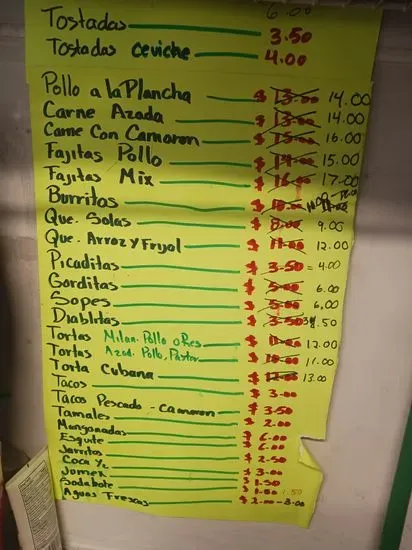 6.00
Tostadas 3.50
Tostadas ceviche 4.00
Pollo a la Plancha $ 13.00 14.00
Carne Azada $ 13.00 14.00
Carne Con Camaron $ 15.00 16.00
Fajitas Pollo $ 14.00 15.00
Fajitas Mix $ 16.00 17.00
Burritos $ 10.00
Que. Solas $ 8.00 9.00
Que. Arroz y Frijol $ 11.00 12.00
Picaditas $ 3.50 = 4.00
Gorditas $ 5.00 6.00
Sopes $ 5.00 6.00
Diablitas $ 3.50 .50
Tortas Milan. Pollo o Res $ 11.00 12.00
Tortas Azad. Pollo, Pastor $ 10.00 11.00
Torta Cubana $ 12.00 13.00
Tacos $ 3.00
Tacos Pescado - Camaron $ 3.50
Tamales $ 2.00
Mangonadas $ 6.00
Esquite $ 6.00
Jarritos $ 2.50
Coca ½ $ 3.00
Jumex $ 1.50
Sodabote $ 1.00 1.50
Aguas Frescas $ 2.00 - 3.00